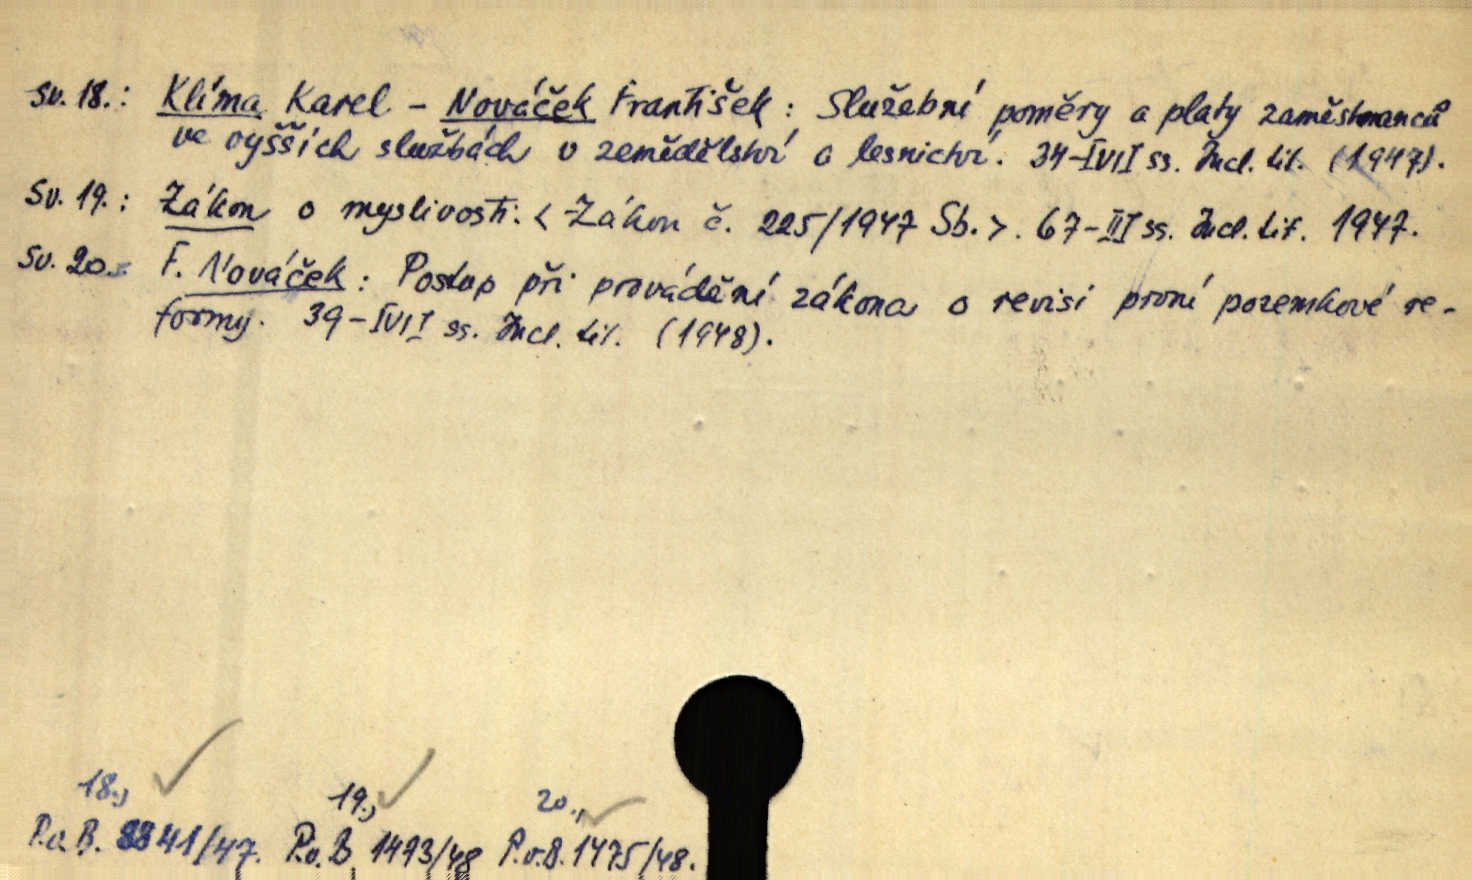 Sv. 18.: Klíma Karel - Nováček František: Služební poměry a platy zaměstnanců
ve vyšších službách v zemědělství a lesnictví. 34-IVII ss. Incl. tit. (1947).
Sv. 19.: Zákon o myslivosti. < Zákon č. 225/1947 Sb. >. 67-III ss. Incl. tit. 1947.
Sv. 20.: F. Nováček: Postup při provádění zákona o revisi první pozemkové re-
formy. 39-IVII ss. Incl. tit. (1948).
18., 19., 20.,
P.o.B. 8841/47. P.o.B 1493/48 P.o.B. 1475/48.